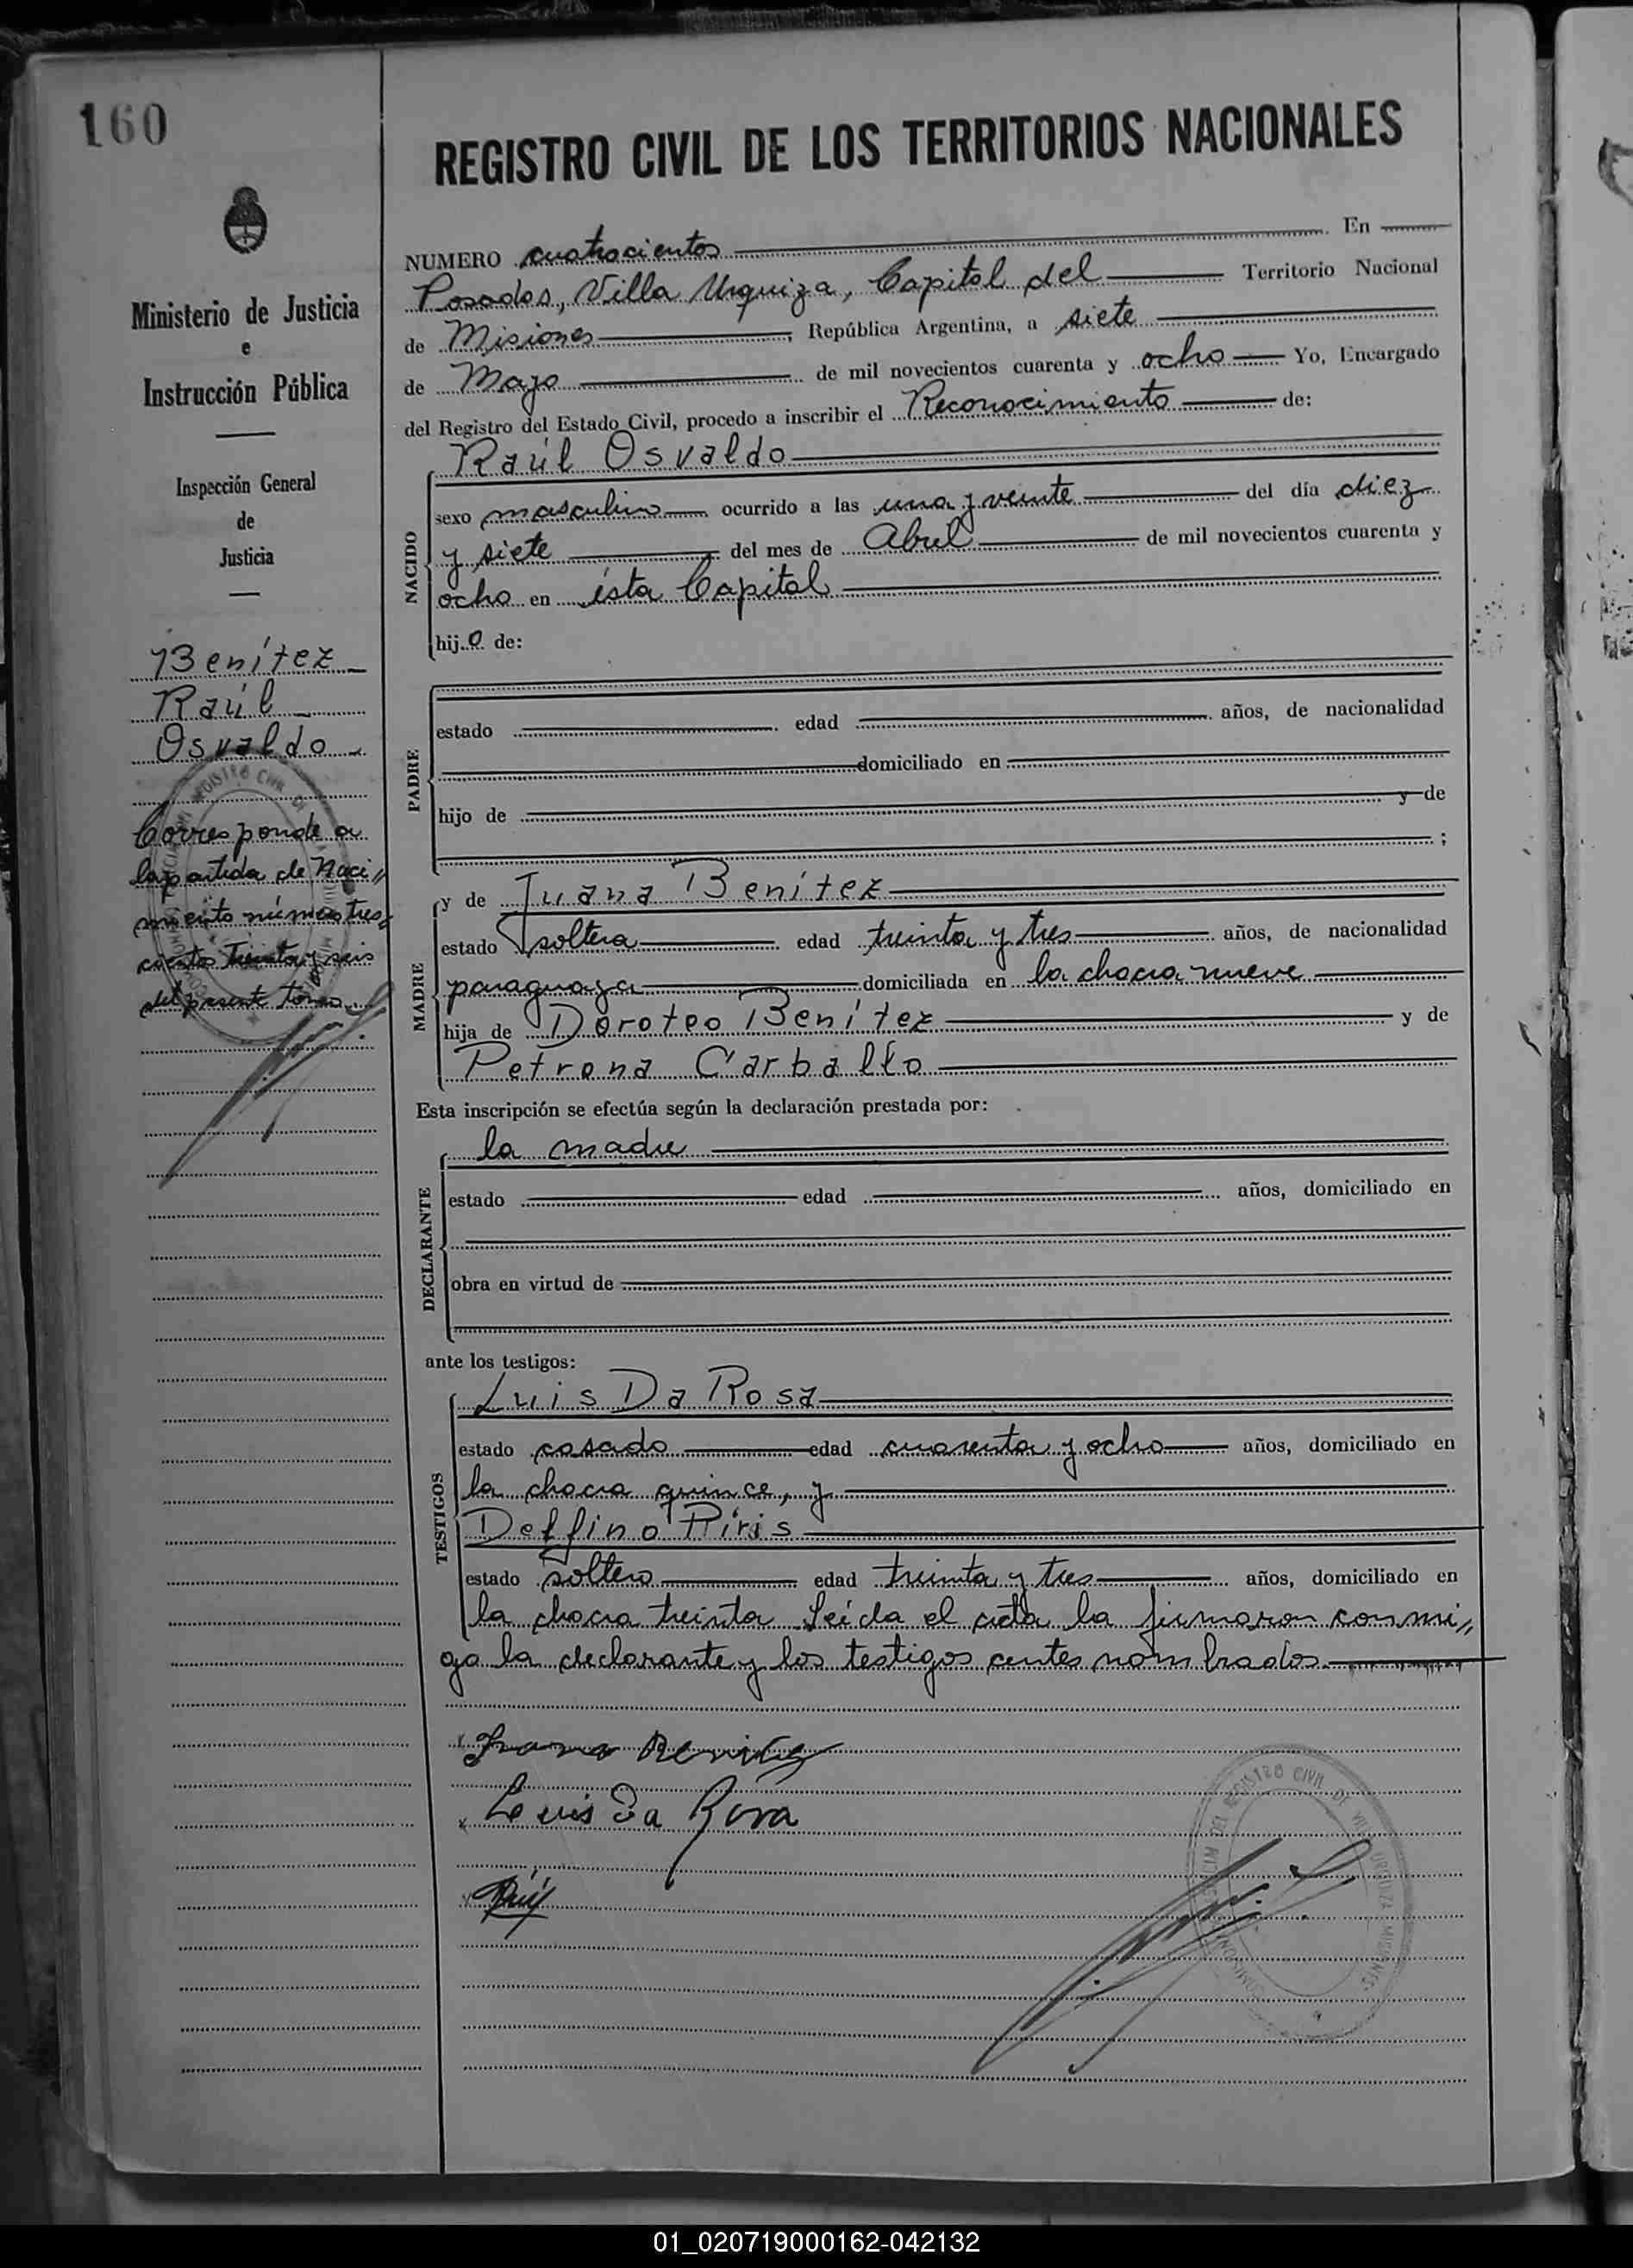 160
Ministerio de Justicia
e
Instrucción Pública
Inspección General
de
Justicia
Benítez
Raúl
Osvaldo
Corresponde a
la partida de Naci„
miento número tres„
cientos treinta y seis
del presente tomo.
REGISTRO CIVIL DE LOS TERRITORIOS NACIONALES
NUMERO cuatrocientos . En
Posadas, Villa Urquiza, Capital del Territorio Nacional
de Misiones, República Argentina, a siete
de Mayo de mil novecientos cuarenta y ocho Yo, Encargado
del Registro del Estado Civil, procedo a inscribir el Reconocimiento de:
Raúl Osvaldo
NACIDO
sexo masculino ocurrido a las una y veinte del día diez
y siete del mes de Abril de mil novecientos cuarenta y
ocho en ésta Capital
hijo de:
PADRE
estado edad años, de nacionalidad
domiciliado en
hijo de y de
;
MADRE
y de Juana Benítez
estado soltera edad treinta y tres años, de nacionalidad
paraguaya domiciliada en la chacra nueve
hija de Doroteo Benítez y de
Petrona Carballo
Esta inscripción se efectúa según la declaración prestada por:
DECLARANTE
la madre
estado edad años, domiciliado en
obra en virtud de
ante los testigos:
TESTIGOS
Luis Da Rosa
estado casado edad cuarenta y ocho años, domiciliado en
la chacra quince, y
Delfino Piris
estado soltero edad treinta y tres años, domiciliado en
la chacra treinta. Leída el acta la firmaron conmi„
go la declarante y los testigos antes nombrados.
Juana Benitez
Luis Da Rosa
REGISTRO CIVIL DE VILLA URQUIZA MISIONES
01_020719000162-042132